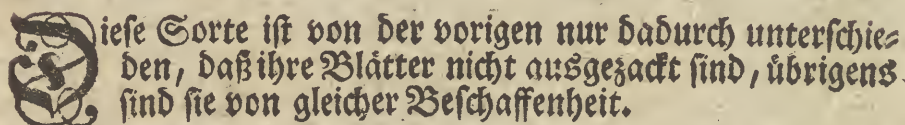 Diese Sorte ist von der vorigen nur dadurch unterschie-
den, daß ihre Blätter nicht ausgezackt sind, übrigens
sind sie von gleicher Beschaffenheit.